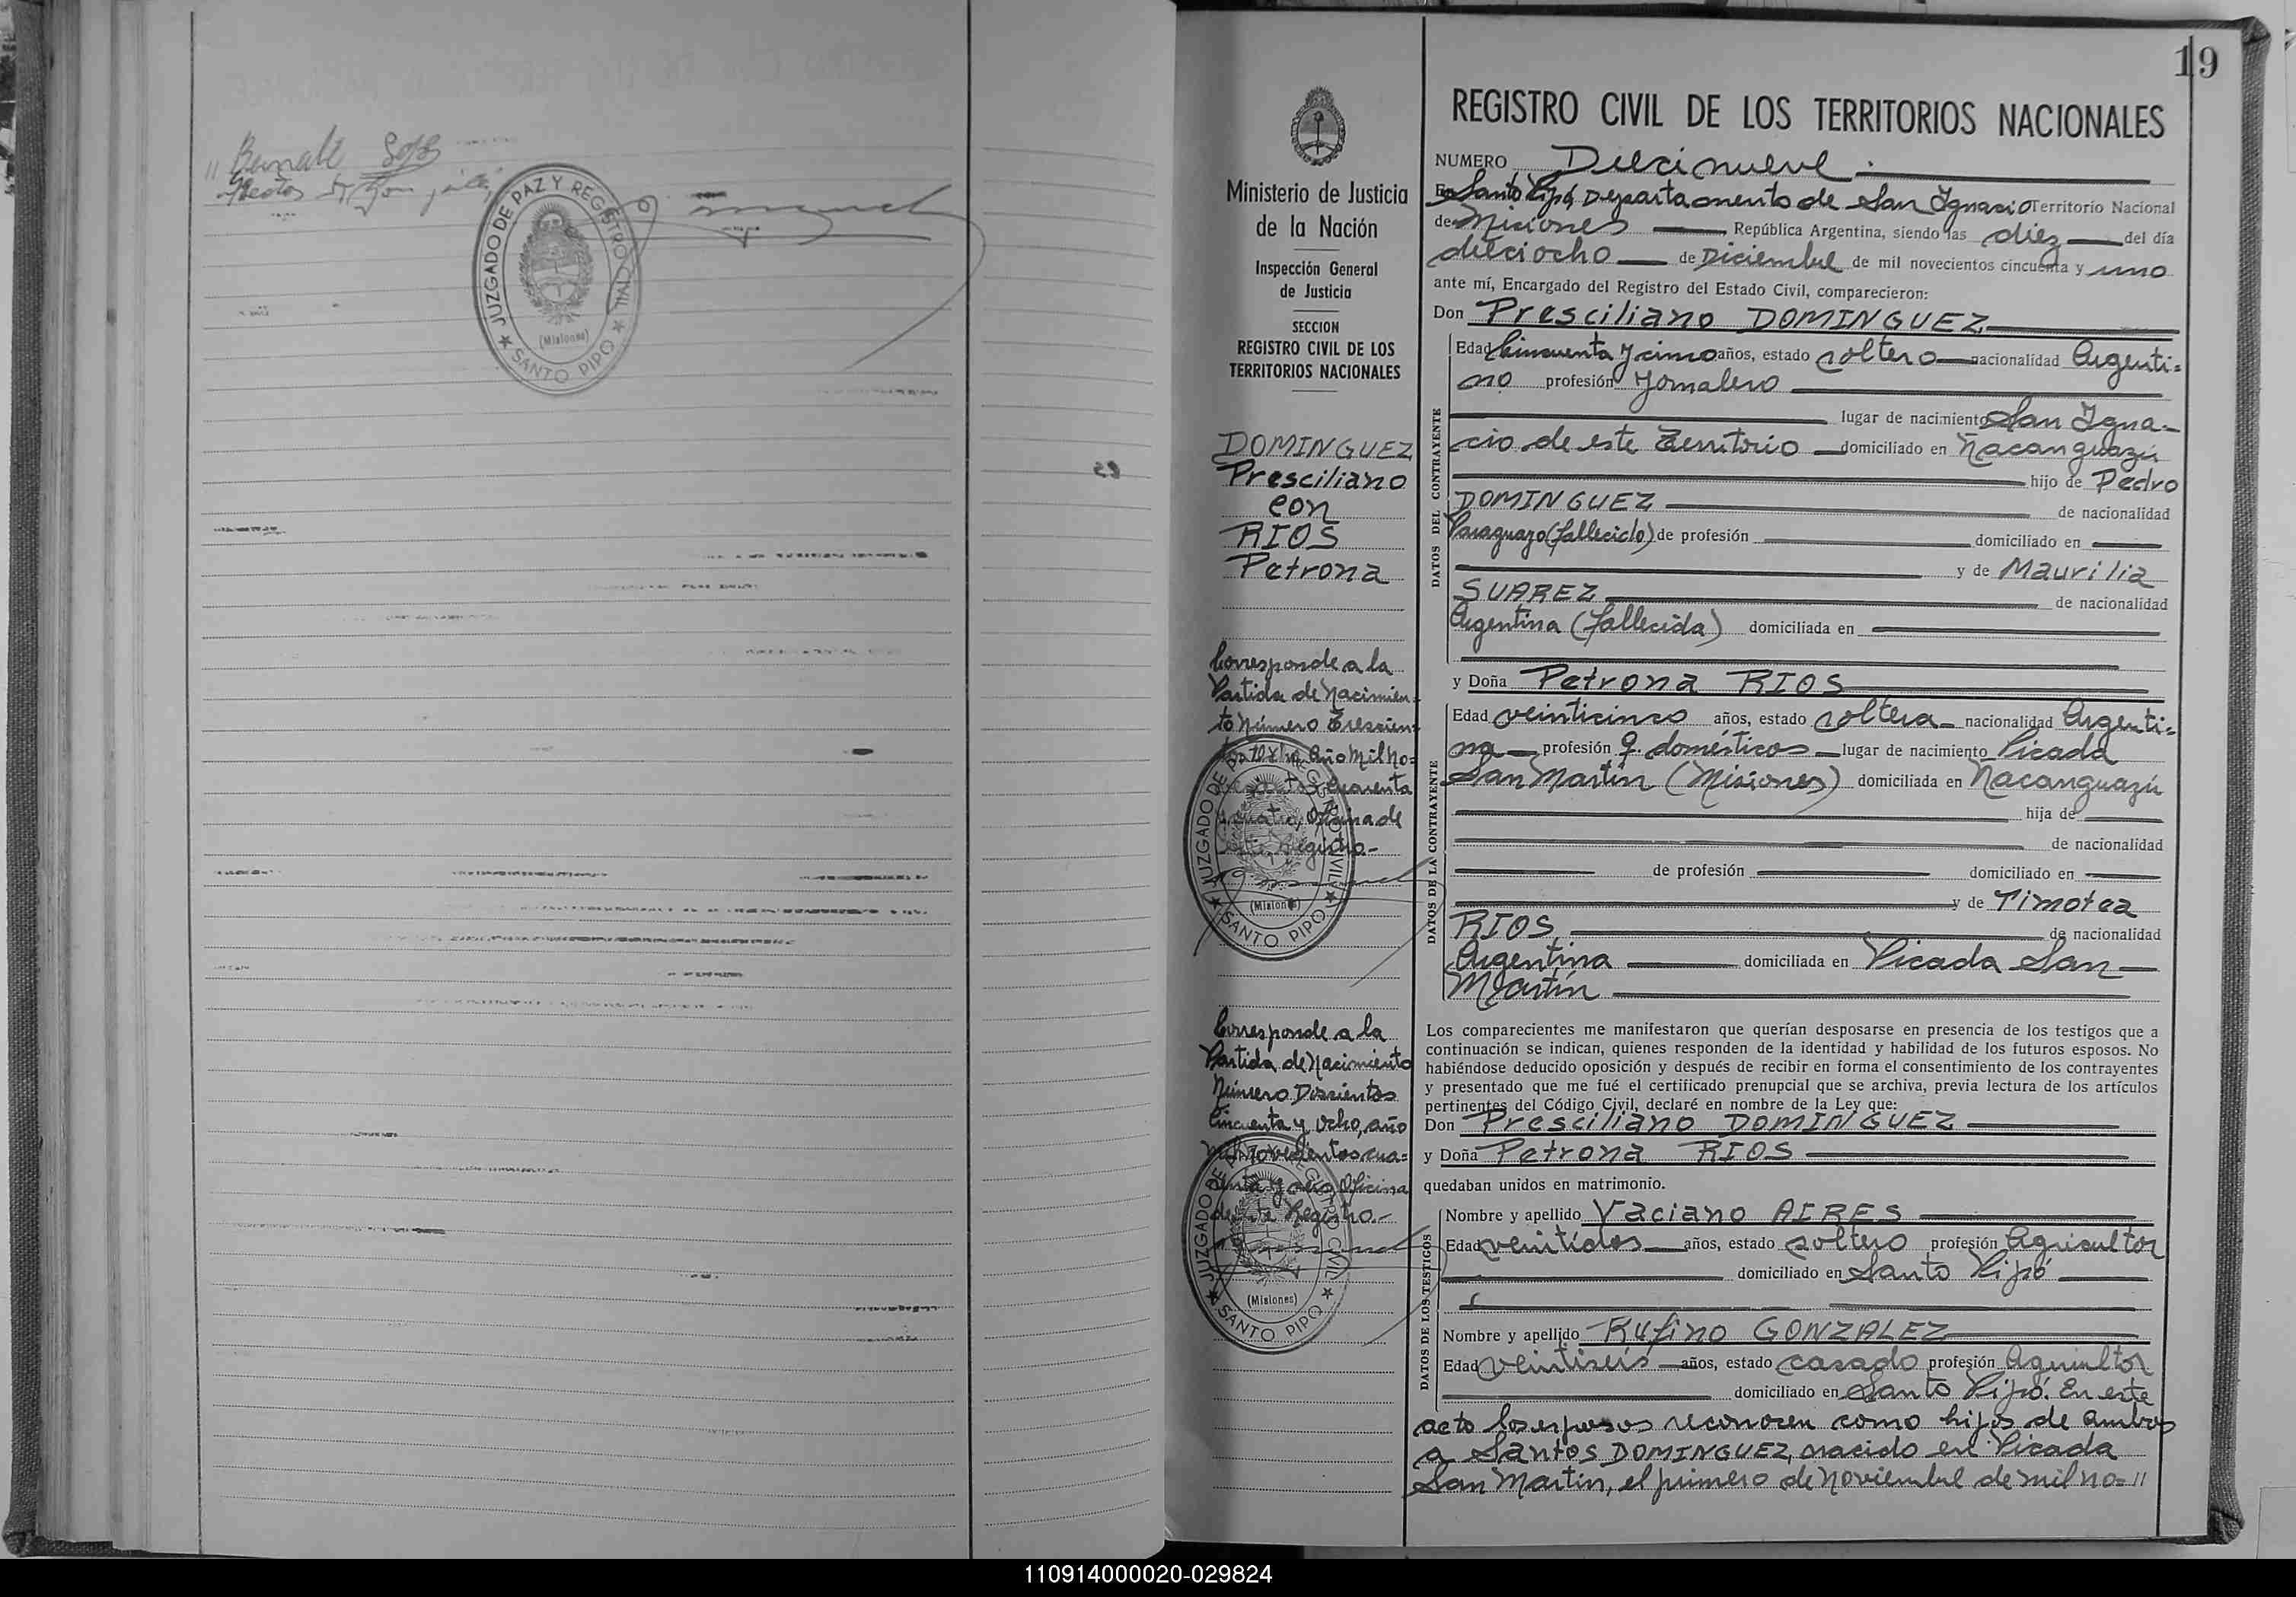 // Bernabé
JUZGADO DE PAZ Y REGISTRO CIVIL
(Misiones)
★ SANTO PIPO ★
19
Ministerio de Justicia
de la Nación
Inspección General
de Justicia
SECCION
REGISTRO CIVIL DE LOS
TERRITORIOS NACIONALES
DOMINGUEZ
Presciliano
con
RIOS
Petrona
Corresponde a la
Partida de Nacimien-
to Número Trescien-
tos ocho, Año Mil No-
vecientos Cuarenta
y cuatro, Oficina de
este Registro.-
JUZGADO DE PAZ Y REGISTRO CIVIL
(Misiones)
★ SANTO PIPO ★
Corresponde a la
Partida de Nacimiento
Número Doscientos
Cincuenta y Ocho, año
Mil Novecientos cua=
renta y ocho Oficina
de este Registro.-
JUZGADO DE PAZ Y REGISTRO CIVIL
(Misiones)
★ SANTO PIPO ★
REGISTRO CIVIL DE LOS TERRITORIOS NACIONALES
NUMERO Diecinueve.
En Santo Pipó, Departamento de San Ignacio Territorio Nacional
de Misiones República Argentina, siendo las diez del día
dieciocho de Diciembre de mil novecientos cincuenta y uno
ante mí, Encargado del Registro del Estado Civil, comparecieron:
Don Presciliano DOMINGUEZ
DATOS DEL CONTRAYENTE
Edad Cincuenta y cinco años, estado soltero nacionalidad Argenti=
no profesión Jornalero
lugar de nacimiento San Igna-
cio de este Territorio domiciliado en Ñacanguazú
hijo de Pedro
DOMINGUEZ de nacionalidad
Paraguayo (fallecido) de profesión domiciliado en
y de Maurilia
SUAREZ de nacionalidad
Argentina (fallecida) domiciliada en
y Doña Petrona RIOS
DATOS DE LA CONTRAYENTE
Edad veinticinco años, estado soltera nacionalidad Argenti=
na profesión q. domésticos lugar de nacimiento Picada
San Martín (Misiones) domiciliada en Ñacanguazú
hija de
de nacionalidad
de profesión domiciliado en
y de Timotea
RIOS de nacionalidad
Argentina domiciliada en Picada San
Martín
Los comparecientes me manifestaron que querían desposarse en presencia de los testigos que a
continuación se indican, quienes responden de la identidad y habilidad de los futuros esposos. No
habiéndose deducido oposición y después de recibir en forma el consentimiento de los contrayentes
y presentado que me fué el certificado prenupcial que se archiva, previa lectura de los artículos
pertinentes del Código Civil, declaré en nombre de la Ley que:
Don Presciliano DOMINGUEZ
y Doña Petrona RIOS
quedaban unidos en matrimonio.
DATOS DE LOS TESTIGOS
Nombre y apellido Vaciano AIRES
Edad veintidos años, estado soltero profesión Agricultor
domiciliado en Santo Pipó
Nombre y apellido Rufino GONZALEZ
Edad veintiseis años, estado casado profesión Agricultor
domiciliado en Santo Pipó. En este
acto los esposos reconocen como hijos de ambos
a Santos DOMINGUEZ, nacido en Picada
San Martin, el primero de Noviembre de mil no= //
110914000020-029824